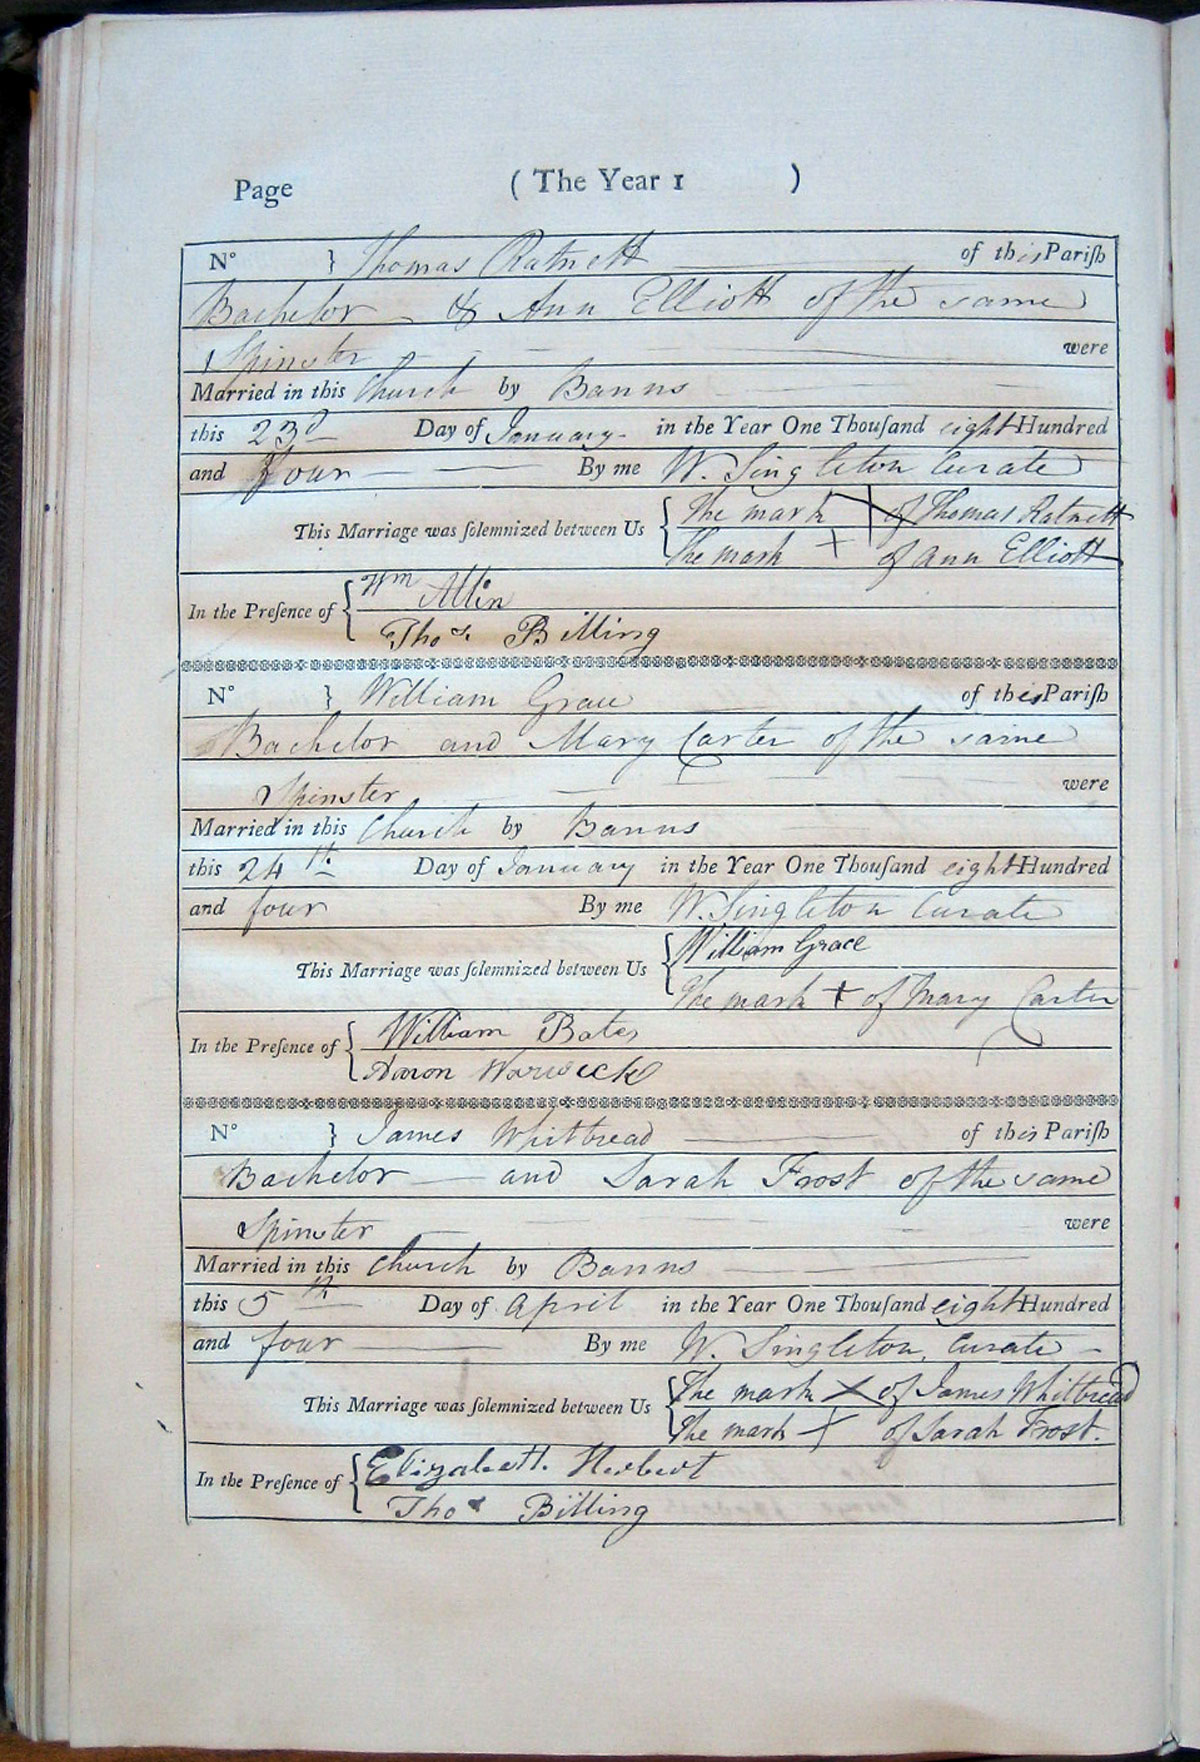 Page ( The Year 1 )
No } Thomas Ratnett of this Pariſh
Bachelor & Ann Elliott of the same
Spinster were
Married in this Church by Banns
this 23d Day of January in the Year One Thouſand eight Hundred
and four By me W. Singleton Curate
This Marriage was ſolemnized between Us { The mark X of Thomas Ratnett
The mark + of Ann Elliott
In the Preſence of { Wm Allin
Thos. Billing
No } William Grace of this Pariſh
Bachelor and Mary Carter of the same
Spinster were
Married in this Church by Banns
this 24th Day of January in the Year One Thouſand eight Hundred
and four By me W. Singleton Curate
This Marriage was ſolemnized between Us { William Grace
The mark + of Mary Carter
In the Preſence of { William Bates
Aaron Warwick
No } James Whitbread of this Pariſh
Bachelor and Sarah Frost of the same
Spinster were
Married in this Church by Banns
this 5th Day of April in the Year One Thouſand eight Hundred
and four By me W. Singleton, Curate
This Marriage was ſolemnized between Us { The mark X of James Whitbread
The mark X of Sarah Frost.
In the Preſence of { Elizabeth Herbert
Thos Billing